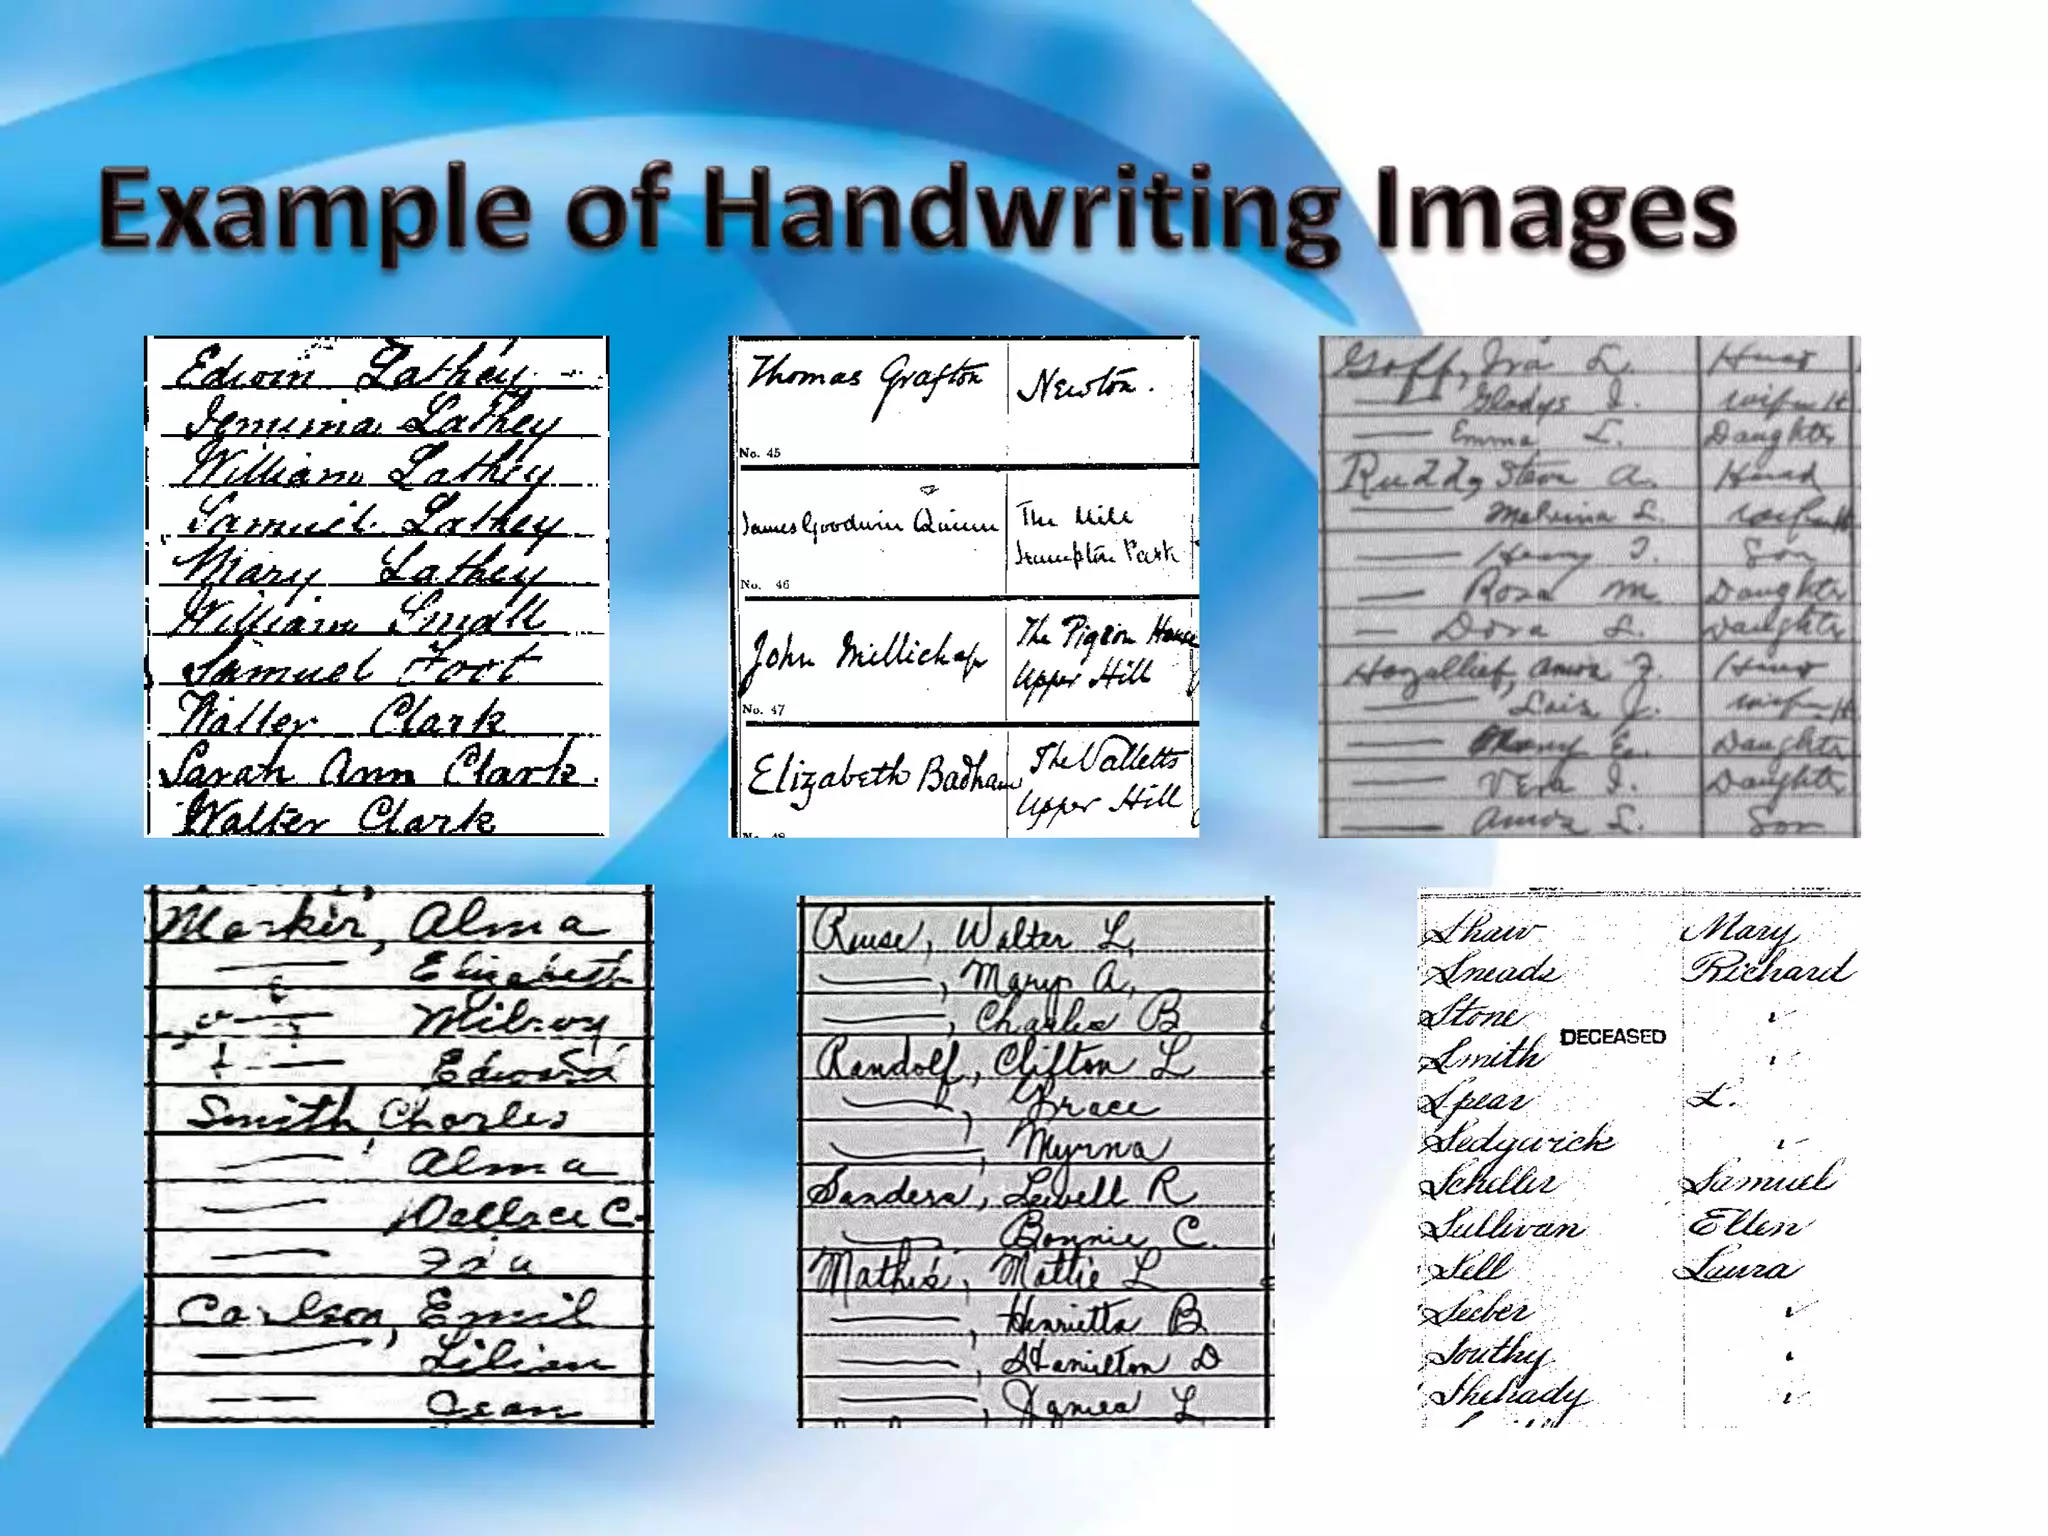 Example of Handwriting Images
Edwin Lathey
Jemima Lathey
William Lathey
Samuel Lathey
Mary Lathey
William Small
Samuel Foot
Walter Clark
Sarah Ann Clark
Walter Clark
Thomas Grafton Newton.
No. 45
James Goodwin Quinn The Mill
Hampton Park
No. 46
John Millichap The Pigeon House
Upper Hill
No. 47
Elizabeth Badham The Valletts
Upper Hill
No. 48
Goff, Ira L. Head
Gladys I. wife H
Emma L. Daughter
Rudd, Steve A. Head
Melvina L. wife H
Henry T. Son
Rosa M. Daughter
Dora L. Daughter
Amos F. Head
Lois J. wife H
E. Daughter
Vera I. Daughter
Amos L. Son
Marker, Alma
Elizabeth
Milroy
Edward
Smith, Charles
Alma
Wallace C.
Ira
Carlson, Emil
Lilian
Jean
Ruse, Walter L,
, Mary A,
, Charles B
Randolf, Clifton L
, Grace
, Myrna
Sanders, Lewell R
Bonnie C.
Mathis, Mattie L
, Henrietta B
, Hamilton D
, Agnes L
Shaw Mary
Sneads Richard
Stone
DECEASED
Smith
Spear L.
Sedgwick
Schiller Samuel
Sullivan Ellen
Sell Laura
Seeber
Southy